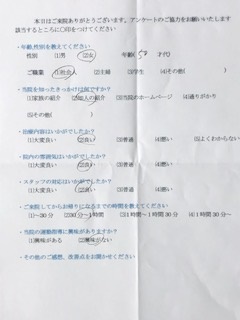 本日はご来院ありがとうございます。アンケートのご協力をお願いいたします
該当するところに○印をつけてください
・年齢,性別を教えてください
性別 (1)男 (2)女 年齢( 50 才代)
ご職業 (1)社会人 (2)主婦 (3)学生 (4)その他( )
・当院を知ったきっかけは何ですか?
(1)家族の紹介 (2)知人の紹介 (3)当院のホームページ (4)通りがかり
(5)その他( )
・治療内容はいかがでしたか?
(1)大変良い (2)良い (3)普通 (4)悪い (5)よくわからない
・院内の雰囲気はいかがでしたか?
(1)大変良い (2)良い (3)普通 (4)悪い
・スタッフの対応はいかがでしたか?
(1)大変良い (2)良い (3)普通 (4)悪い
・ご来院してからお帰りになるまでの時間を教えてください
(1)~30分 (2)30分~1時間 (3)1時間~1時間30分 (4)1時間30分~
・当院の運動指導に興味がありますか?
(1)興味がある (2)興味がない
・その他のご感想、改善点をお聞かせください